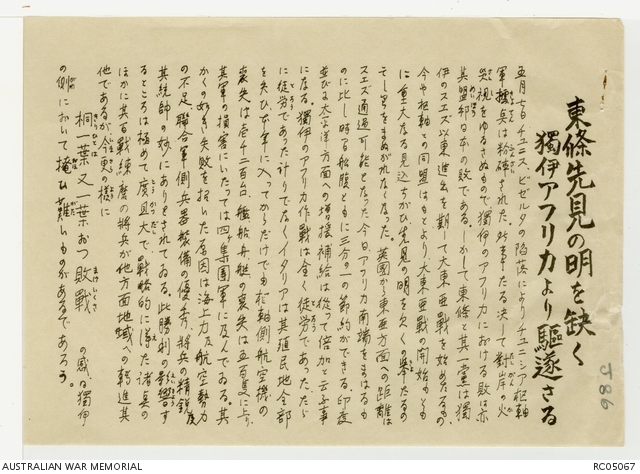 東條先見の明を欠く
獨伊アフリカより驅逐さる
五月七日チュニス、ビゼルタの陥落によりチュニシア枢軸
軍殘兵は粉碎された。此またる決して對岸の火
災視をゆるさぬもので獨伊のアフリカにおける敗は亦
其盟邦日本の敗である。しかして東條と其一黨は獨
伊のスエズ以東進出を期して大東亜戰を始めたるもの
今や枢軸との同盟はもとより大東亜戰の開始そのもの
に重大なる見込ちがひ、先見の明を欠くの擧たるの
そしりをまぬがれなくなった。英國から東亜方面への距離は
スエズ通過可能となった今日、アフリカ南端をまはるも
のに比し時も船腹ともに三分の一の節約ができる。印度
並びに太平洋方面への増援補給は從って倍加と云ふ事
になる。獨伊のアフリカ作戰は全く徒労であった、ただ
に徒労であった計りでなくイタリアは其殖民地全部
を失ひ本年に入ってからだけでも枢軸側航空機の
喪失は壱千二百台、艦船舟艇の喪失は五百隻に上り
其軍の損害にいたっては四集團軍に及んでゐる。其
かくの如き失敗を招いた原因は海上力及航空勢力
の不足、聯合軍側兵器装備の優秀、將兵の精鋭及
其統帥の妙にありとされてゐる。此勝利の影響す
るところは極めて廣且大で、戰略的に得た諸点の
ほかに其百戰練磨の將兵が他方面地域への轉進其
他であるが今更の様に
桐一葉又一葉おつ敗戰 の感は獨伊
の側において掩ひ難いものがあるであらう。
J86
AUSTRALIAN WAR MEMORIAL
RC05067